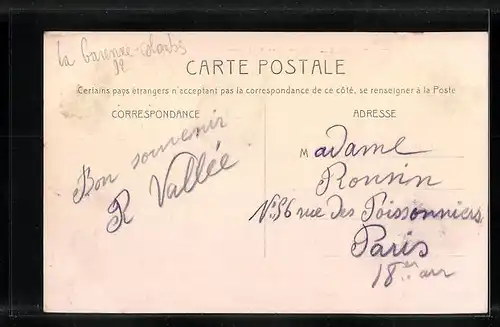 La Garenne-Colombes
92
CARTE POSTALE
Certains pays étrangers n'acceptant pas la correspondance de ce côté, se renseigner à la Poste
CORRESPONDANCE
Bon souvenir
R Vallée
ADRESSE
Madame
Ronsin
N° 56 rue des Poissonniers
Paris
18 arr